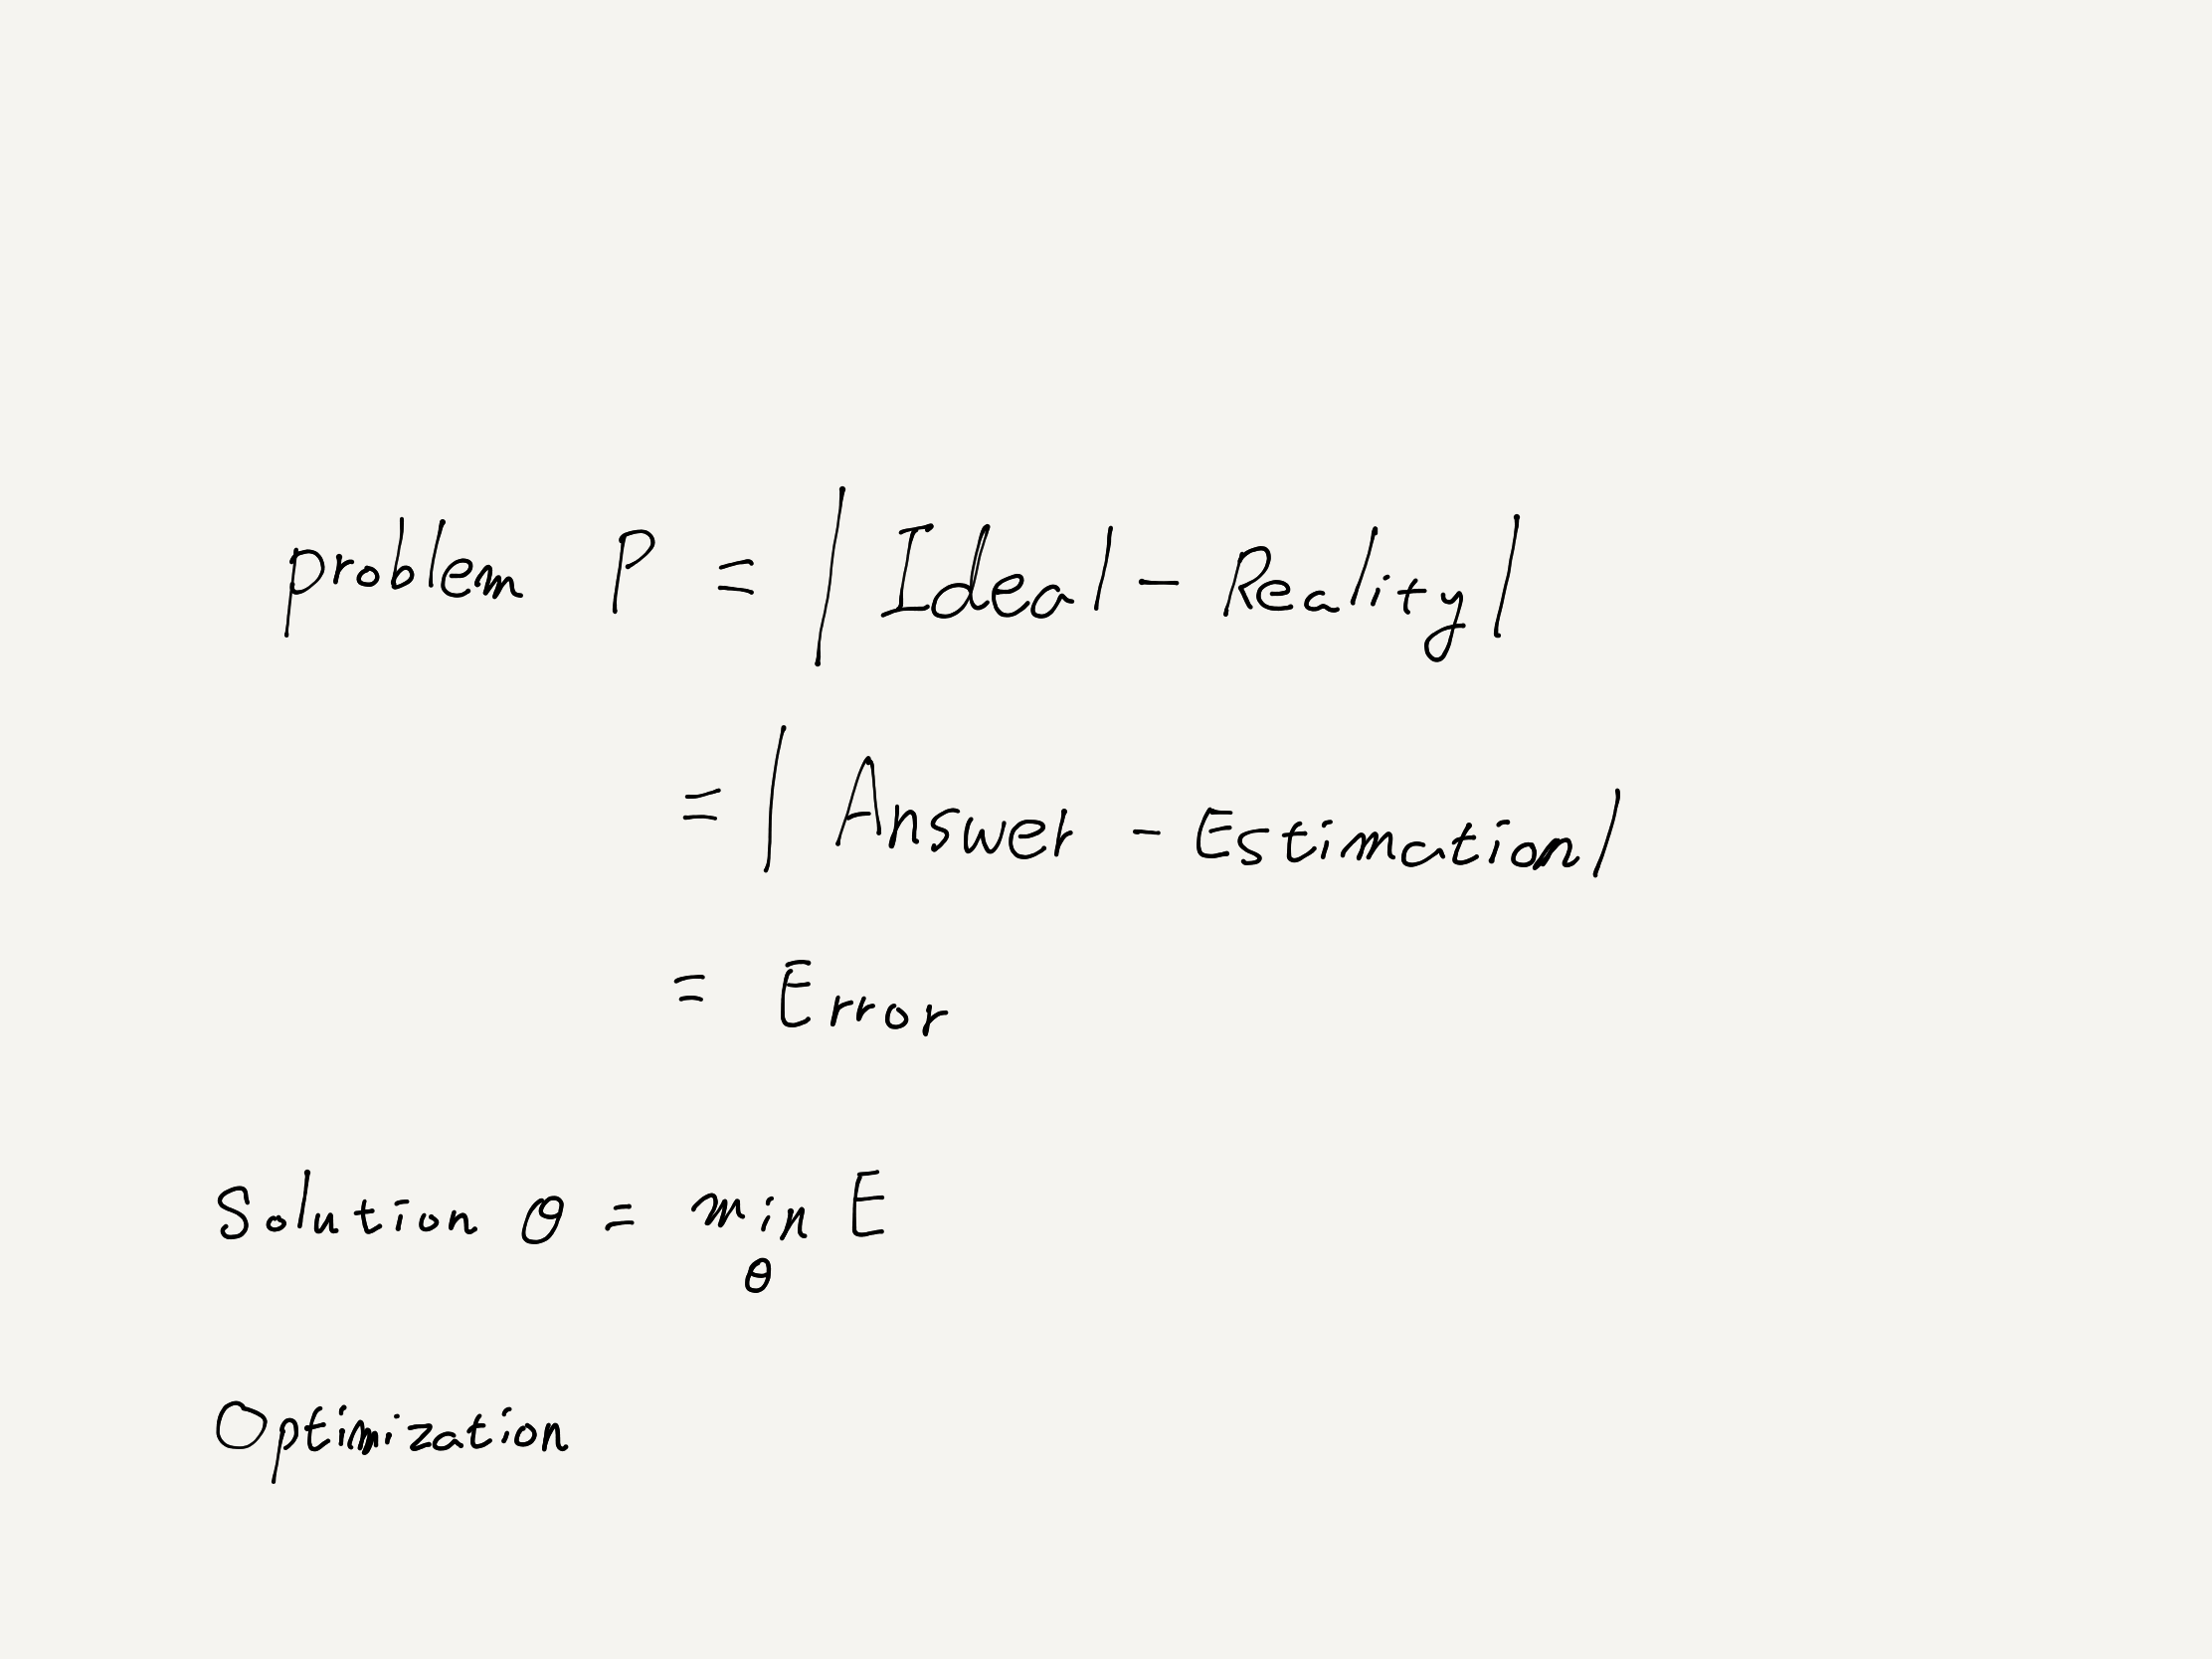 problem P = | Ideal - Reality |
= | Answer - Estimation |
= Error
Solution θ = min E
θ
Optimization